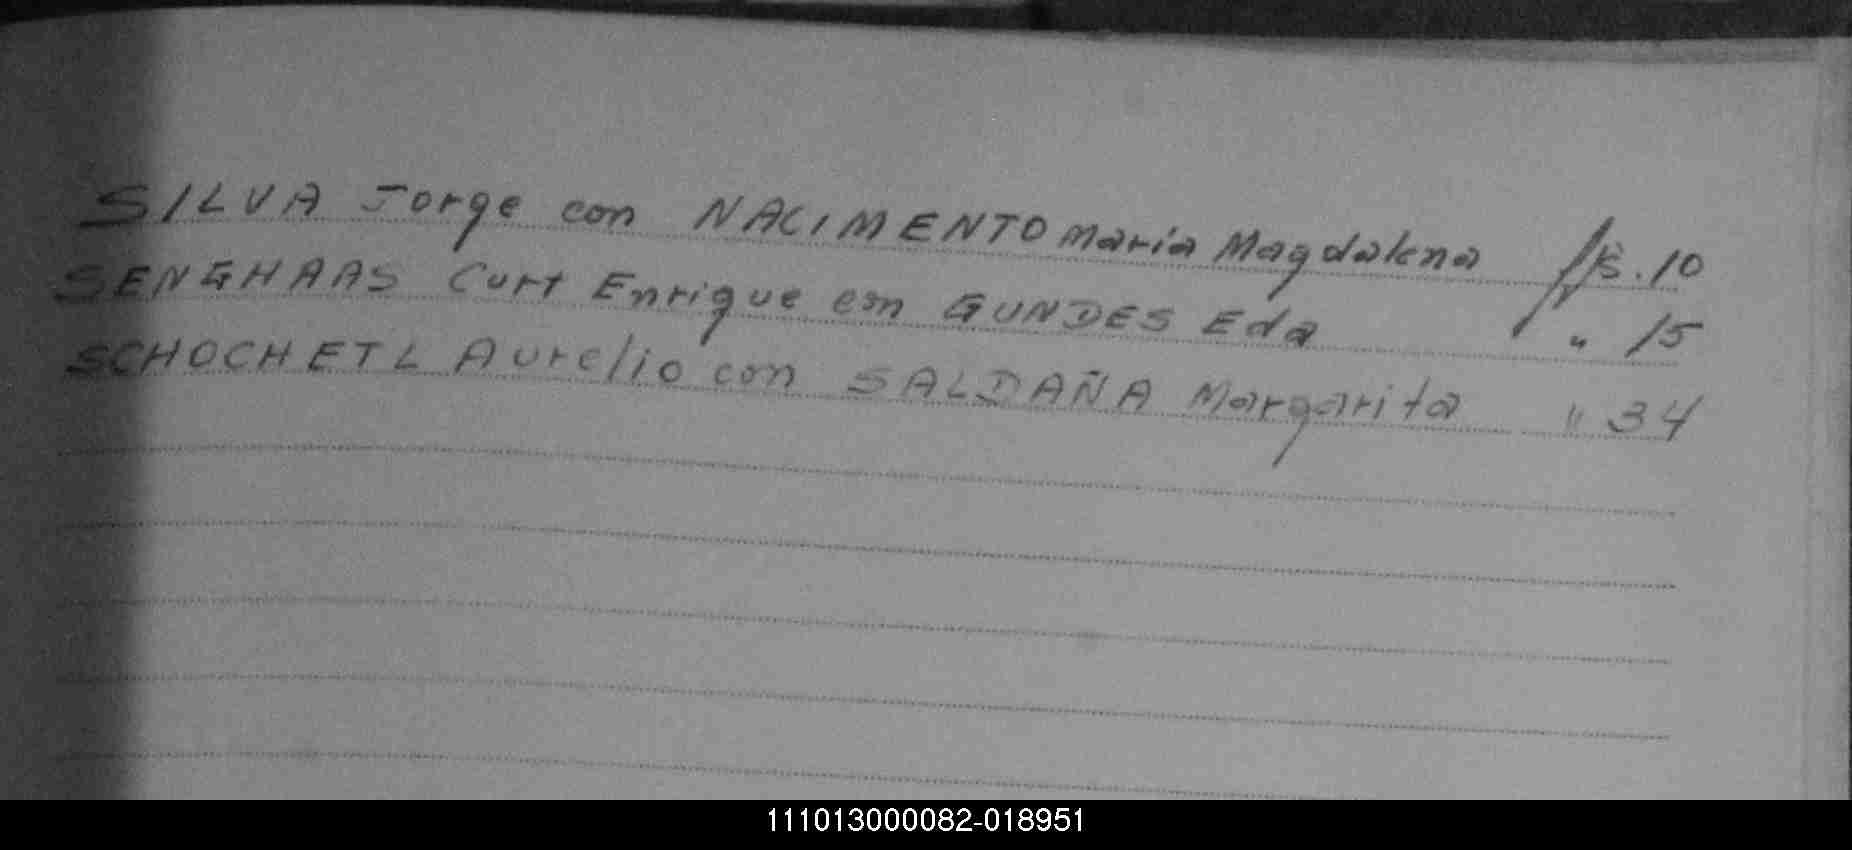 SILVA Jorge con NACIMENTO María Magdalena fs. 10
SENGHAAS Curt Enrique con GUNDES Eda " 15
SCHOCHETL Aurelio con SALDAÑA Margarita " 34
111013000082-018951